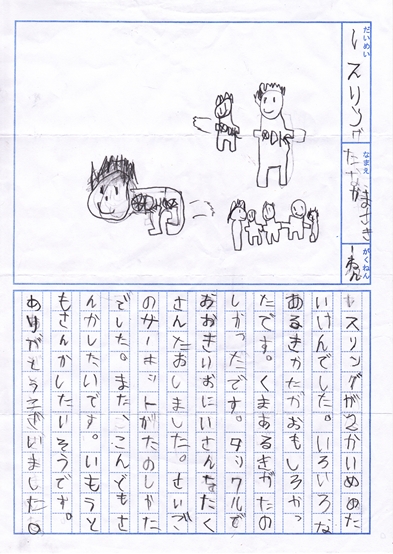 だいめい
レスリング
なまえ
たなかまさき
がくねん
一ねん
レスリングが2かいめのた
いけんでした。いろいろな
あるきかたがおもしろかっ
たです。くまあるきがたの
しかったです。タックルで
おおきいおにいさんをたく
さんたおしました。さいご
のサーキットがたのしかた
でした。また、こんどもさ
んかしたいです。いもうと
もさんかしたいそうです。
ありがとうございました。